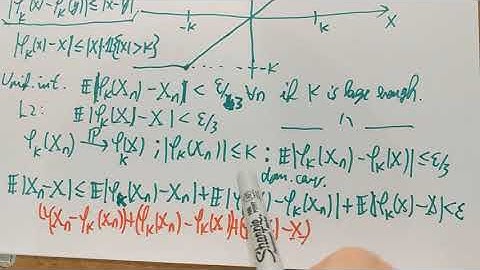 |φ_K(x) - φ_K(y)| ≤ |x-y|
-K K X
|φ_K(x) - x| ≤ |x|·1{|x|>K}
-K
Unif. int. 𝔼|φ_K(X_n) - X_n| < ε/3 ∀n if K is large enough.
L2: 𝔼|φ_K(X) - X| < ε/3
φ_K(X_n) →^ℙ φ_K(X) ; |φ_K(X_n)| ≤ K : 𝔼|φ_K(X_n) - φ_K(X)| ≤ ε/3
dom. conv.
𝔼|X_n - X| ≤ 𝔼|φ_K(X_n) - X_n| + 𝔼|φ - φ_K(X_n)| + 𝔼|φ_K(X) - X| < ε
(X_n - φ_K(X_n)) + (φ_K(X_n) - φ_K(X)) + - X)
Sharpie